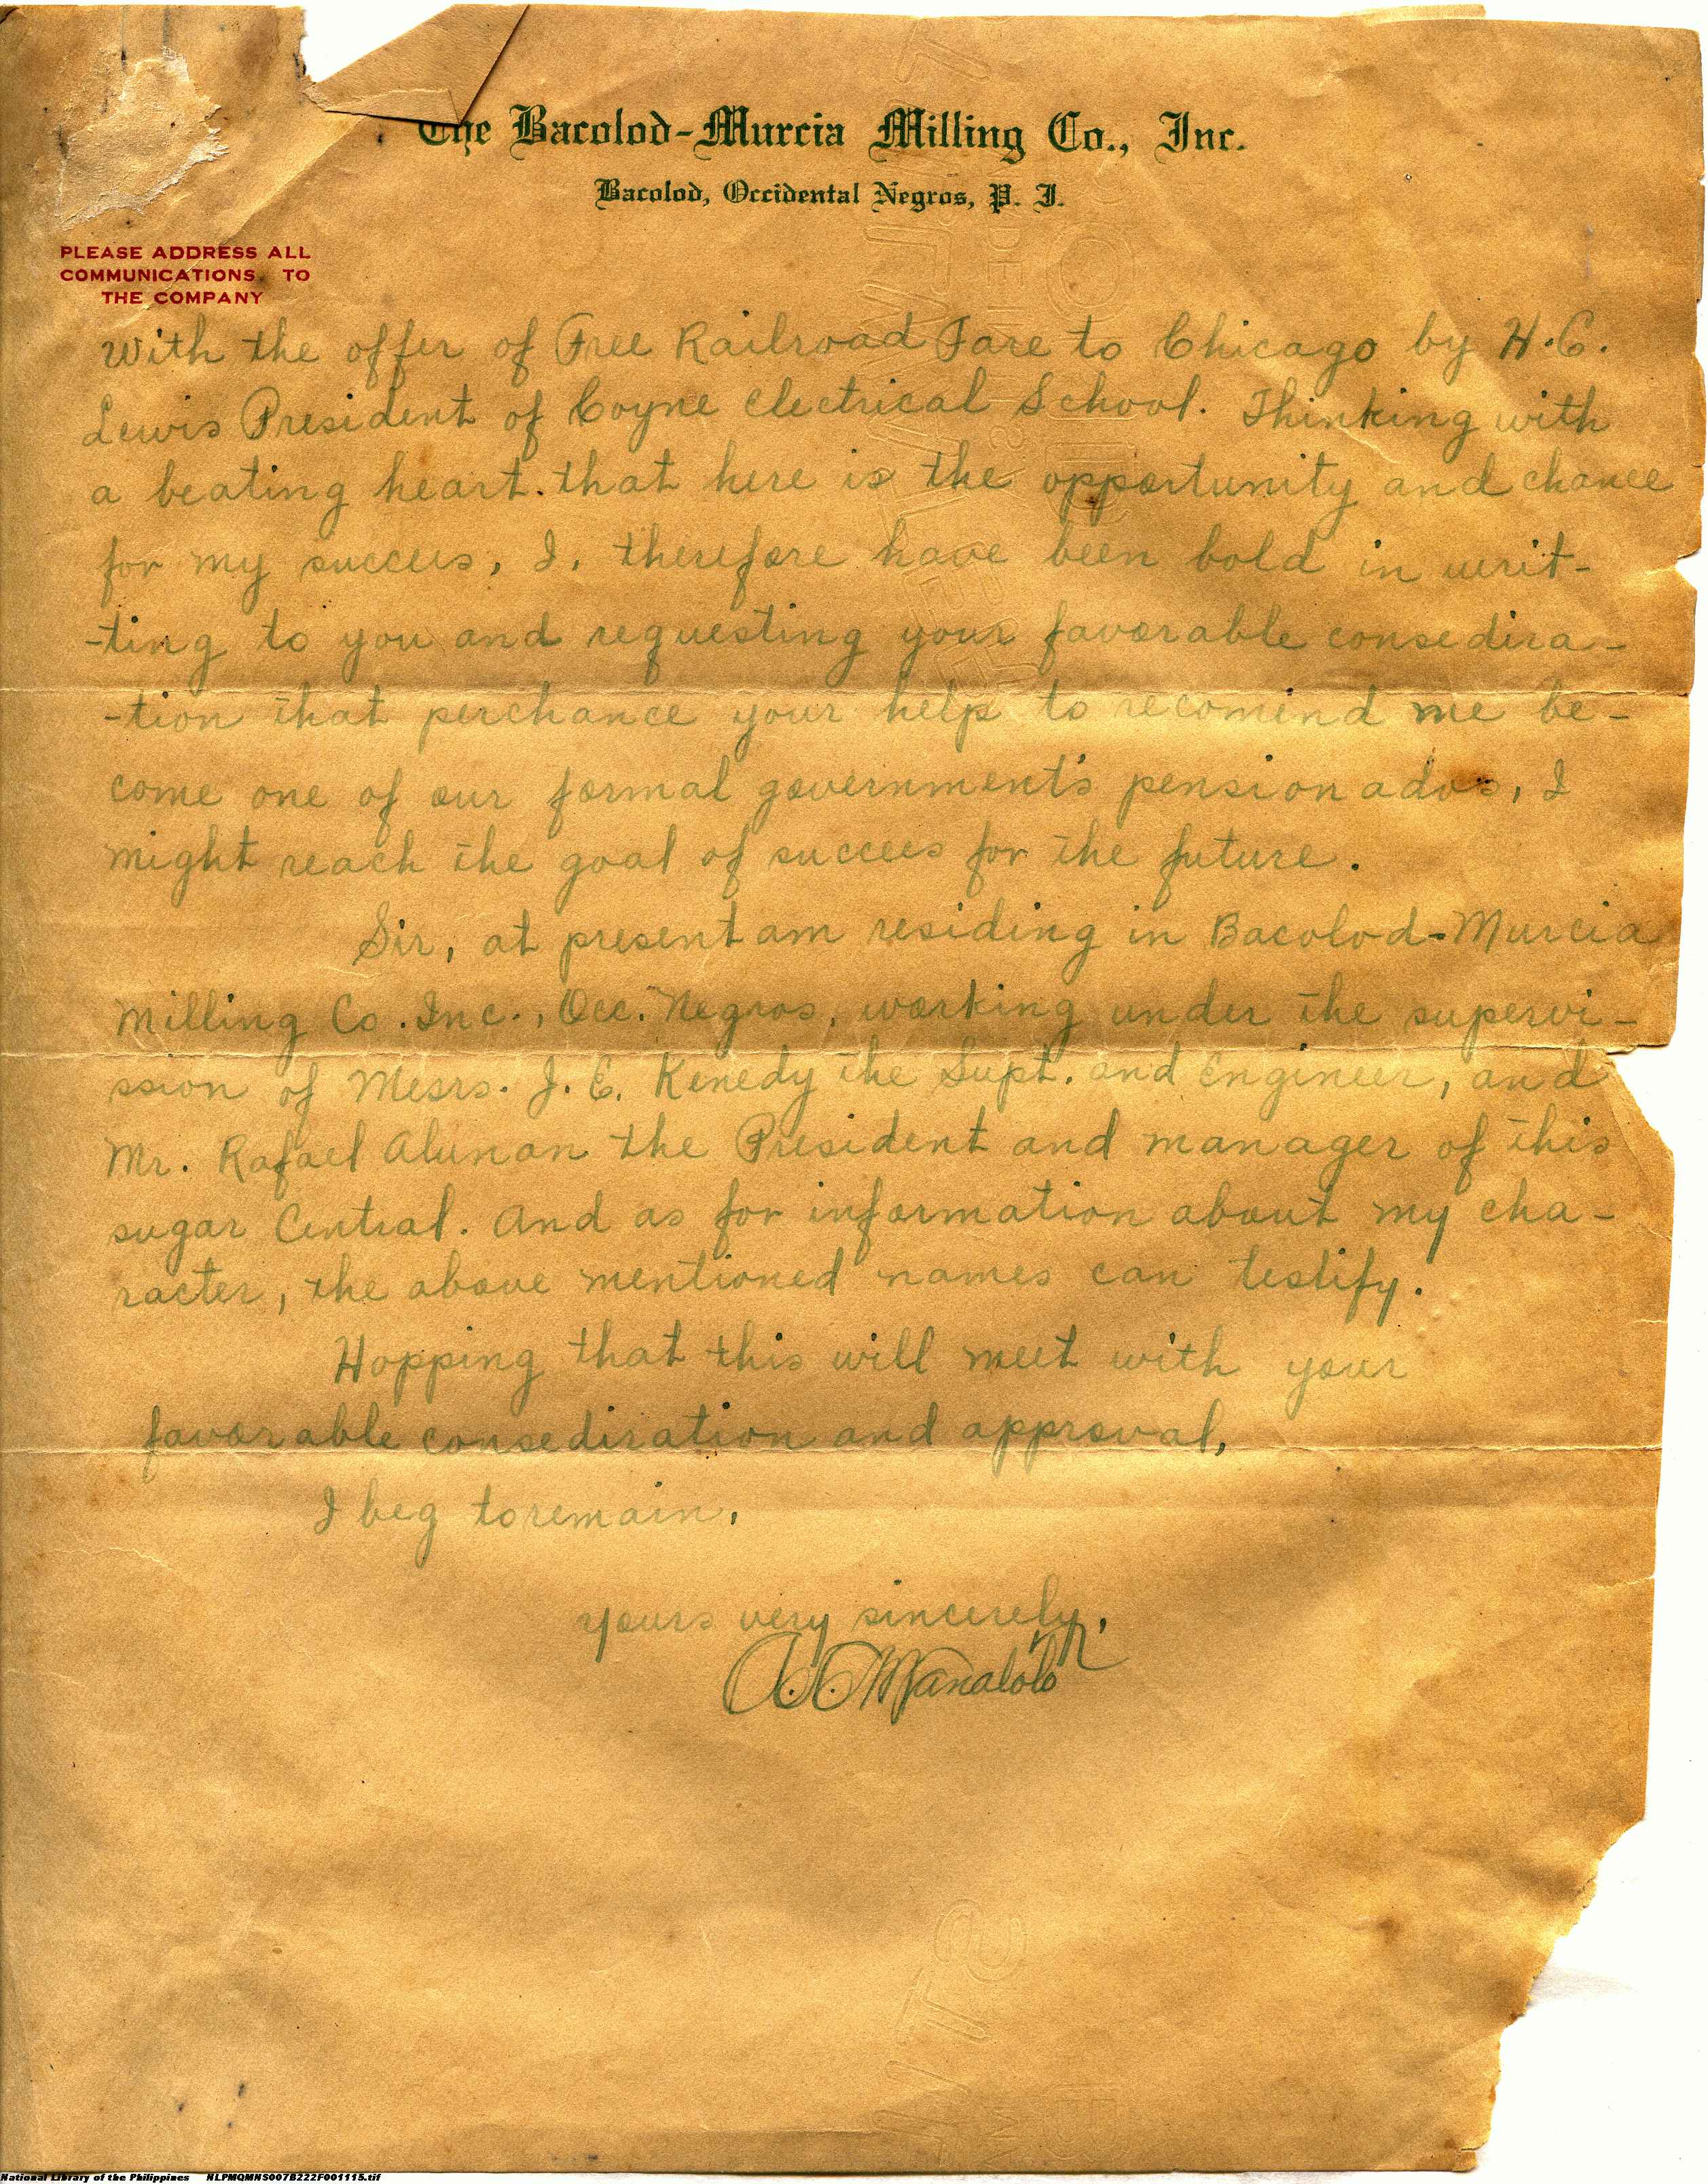 The Bacolod-Murcia Milling Co., Inc.
Bacolod, Occidental Negros, P. I.
PLEASE ADDRESS ALL
COMMUNICATIONS TO
THE COMPANY
With the offer of Free Railroad Fare to Chicago by H.C.
Lewis President of Coyne Electrical School. Thinking with
a beating heart. that here is the opportunity and chance
for my succees, I, therefore have been bold in writ-
-ting to you and requesting your favorable consedira-
-tion that perchance your help to recomend me be-
come one of our formal government's pensionados, I
might reach the goal of succees for the future.
Sir, at present am residing in Bacolod-Murcia
Milling Co. Inc., Occ. Negros, working under the supervi-
ssion of Mesrs. J. E. Kenedy the Supt. and Engineer, and
Mr. Rafael Alunan the President and manager of this
sugar Central. And as for information about my cha-
racter, the above mentioned names can testify.
Hopping that this will meet with your
favorable consediration and approval,
I beg to remain,
Yours very sincerely,
Manalolo
National Library of the Philippines NLPMQMNS007B222F001115.tif